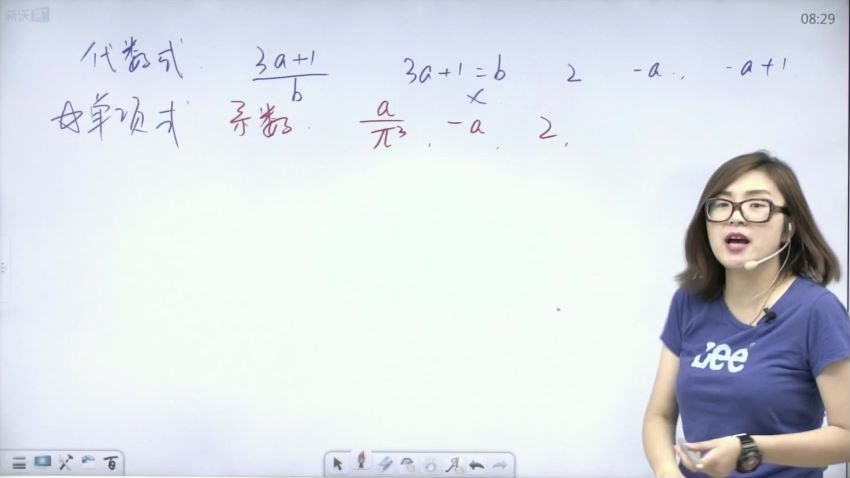 新沃
08:29
代数式 (3a+1)/b 3a+1=b × 2 -a, -a+1
☆单项式 系数 a/π³, -a, 2,
Lee